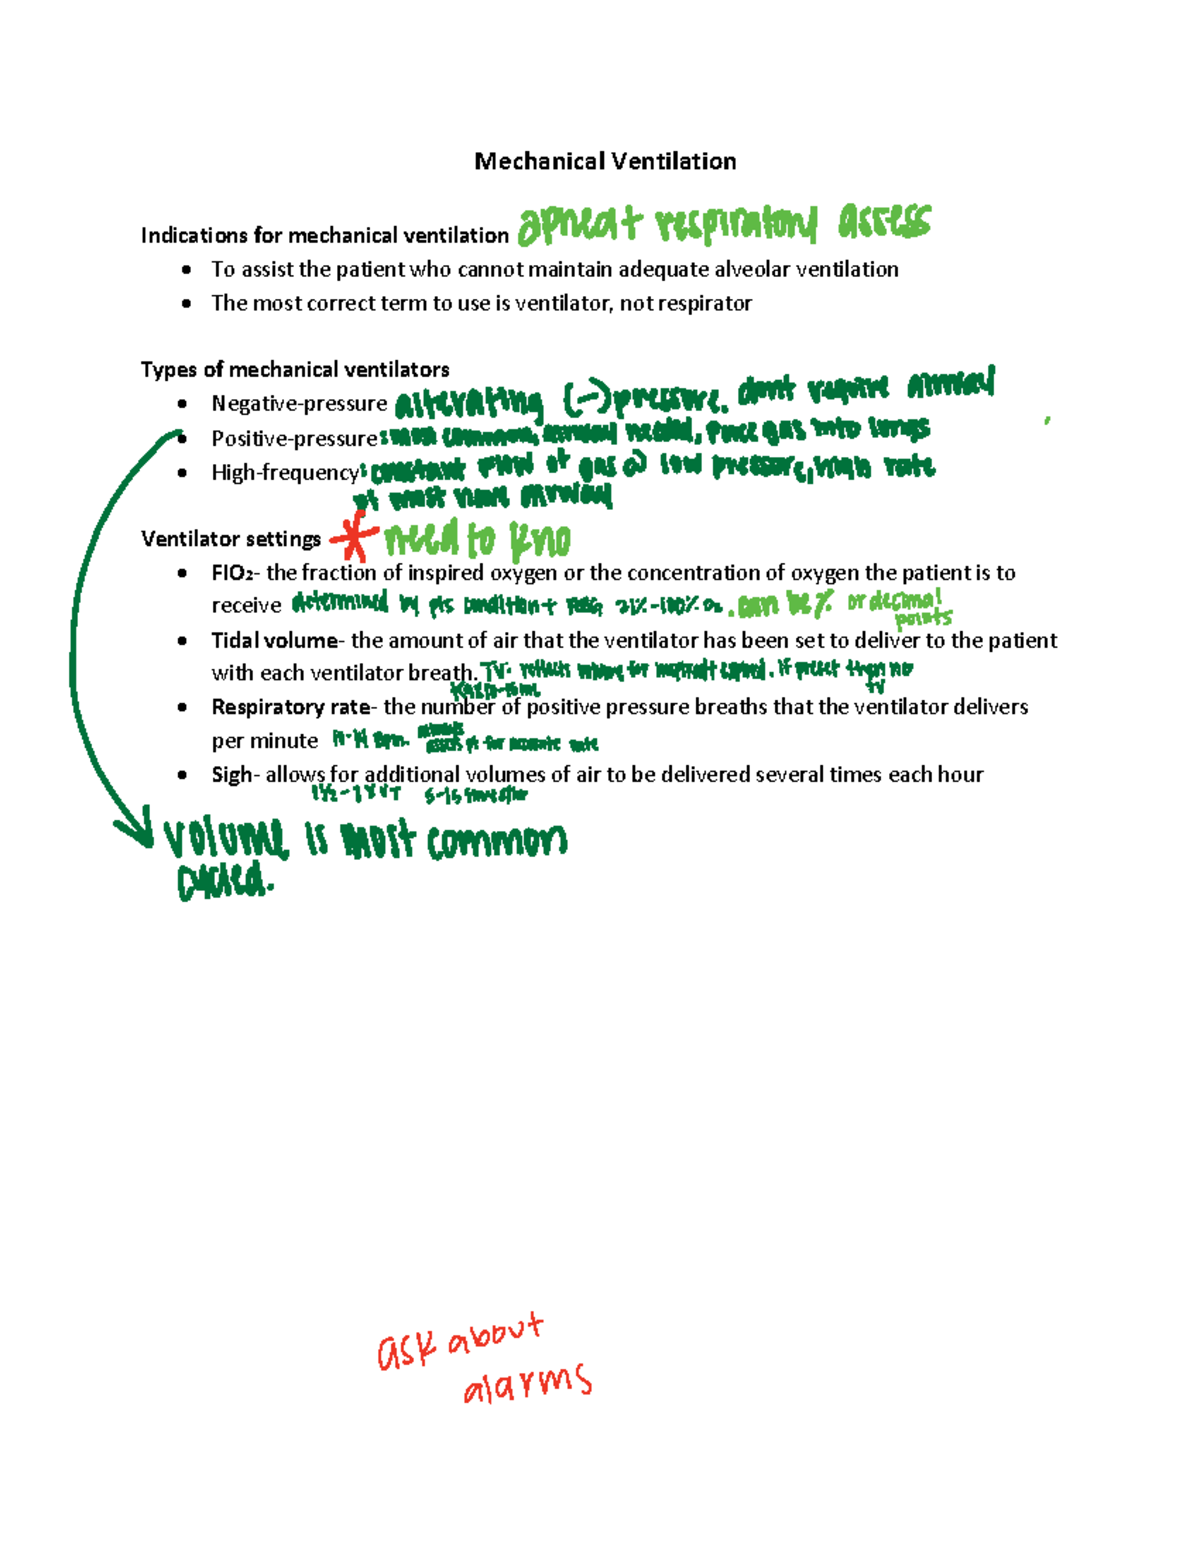 Mechanical Ventilation
Indications for mechanical ventilation apnea + respiratory assess
• To assist the patient who cannot maintain adequate alveolar ventilation
• The most correct term to use is ventilator, not respirator
Types of mechanical ventilators
• Negative-pressure alterating (-) pressure. dont require airway
• Positive-pressure: most common, airway needed, force gas into lungs
• High-frequency: constant flow of gas @ low pressure, high rate
pt must have airway
Ventilator settings * need to kno
• FIO₂- the fraction of inspired oxygen or the concentration of oxygen the patient is to
receive determined by pts condition + ABG 21%-100% O₂. can be % or decimal
points
• Tidal volume- the amount of air that the ventilator has been set to deliver to the patient
with each ventilator breath. TV- if preset then no
TV
• Respiratory rate- the number of positive pressure breaths that the ventilator delivers
per minute bpm. always
assess pt for rate
• Sigh- allows for additional volumes of air to be delivered several times each hour
volume is most common
cycled.
ask about
alarms